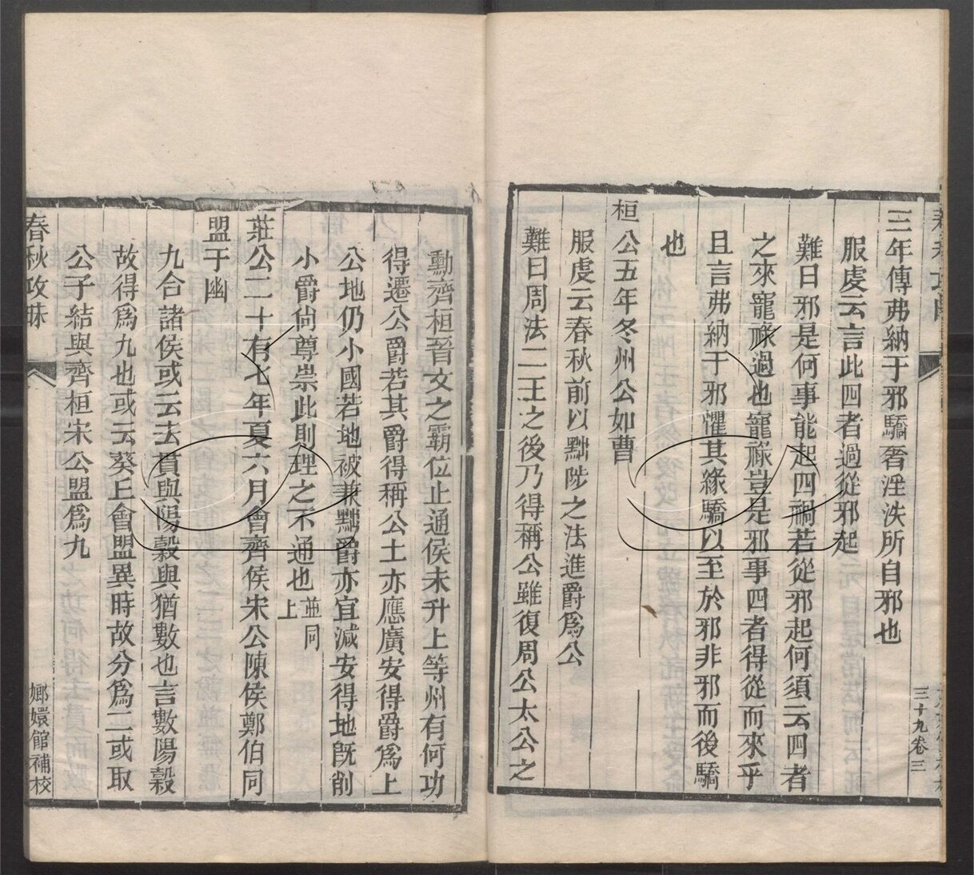 三年傳弗納于邪驕奢淫泆所自邪也
服虔云言此四者過從邪起
難曰邪是何事能起四禍若從邪起何須云四者
之來寵祿過也寵祿豈是邪事四者得從而來乎
且言弗納于邪懼其緣驕以至於邪非邪而後驕
也
桓公五年冬州公如曹
服虔云春秋前以黜陟之法進爵爲公
難曰周法二王之後乃得稱公雖復周公太公之
三十九卷三
勳齊桓晉文之霸位止通侯未升上等州有何功
得遷公爵若其爵得稱公土亦應廣安得爵爲上
公地仍小國若地被兼黜爵亦宜減安得地既削
小爵尙尊崇此則理之不通也並同上
莊公二十有七年夏六月會齊侯宋公陳侯鄭伯同
盟于幽
九合諸侯或云去貫與陽穀與猶數也言數陽穀
故得爲九也或云葵丘會盟異時故分爲二或取
公子結與齊桓宋公盟爲九
春秋攻昧
嫏嬛館補校